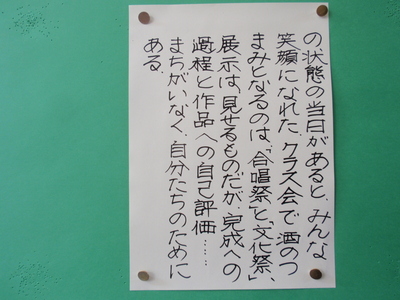 の状態の当日があると、みんな
笑顔になれた。クラス会で酒のつ
まみとなるのは、「合唱祭」と「文化祭」、
展示は、見せるものだが、完成への
過程と作品への自己評価……
まちがいなく、自分たちのために
ある。